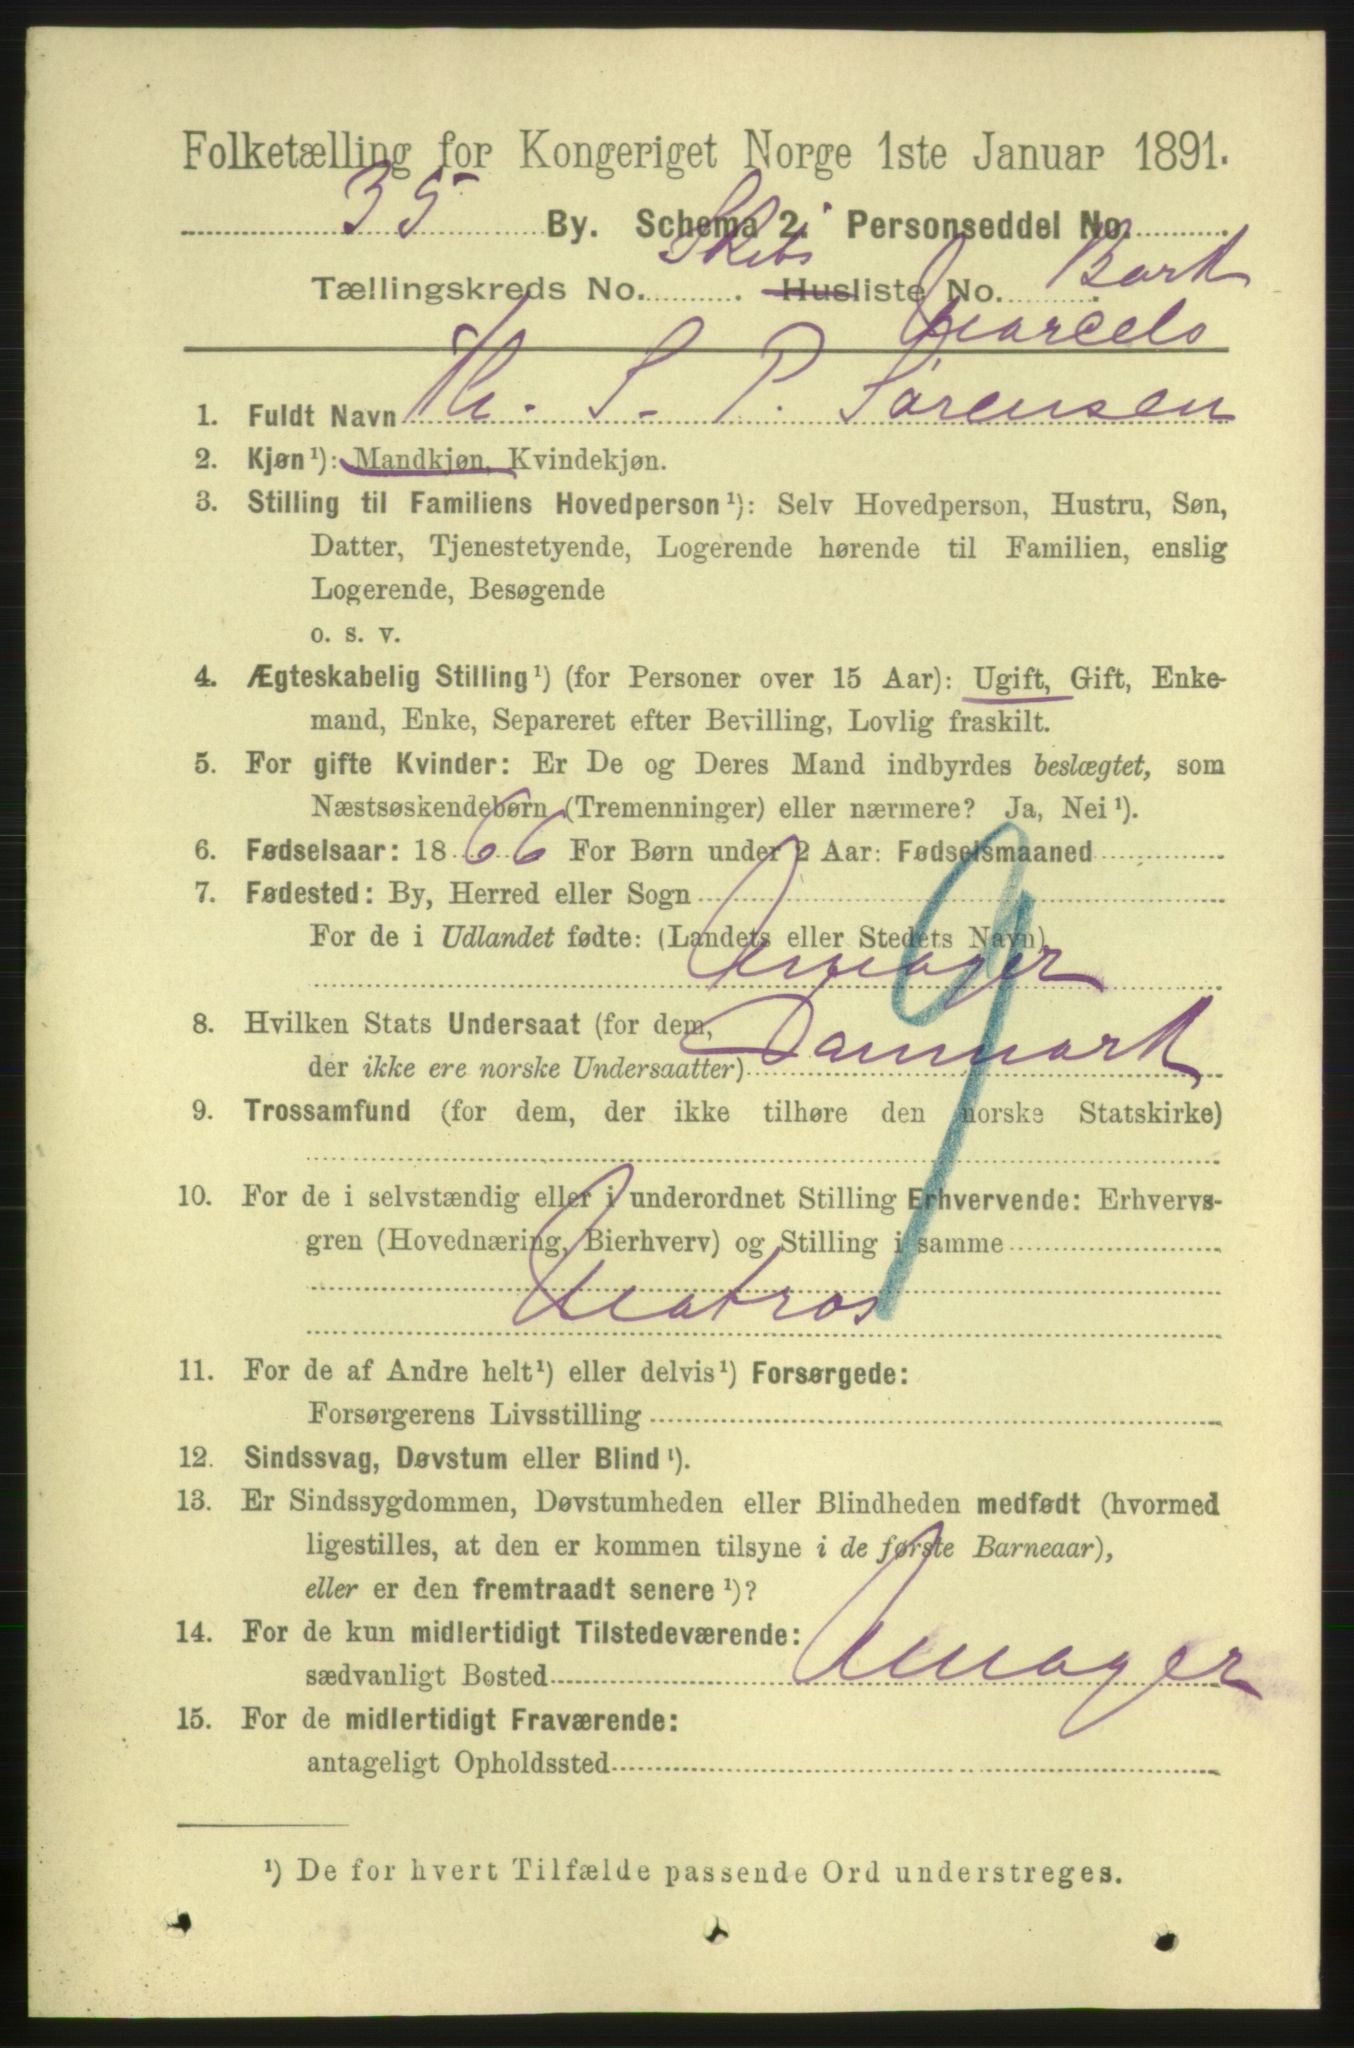 Folketælling for Kongeriget Norge 1ste Januar 1891.
35 By. Schema 2. Personseddel No.
Tællingskreds No. Skibs Husliste No. Bark
Marcelo
1. Fuldt Navn Th. S. P. Sørensen
2. Kjøn¹): Mandkjøn, Kvindekjøn.
3. Stilling til Familiens Hovedperson¹): Selv Hovedperson, Hustru, Søn,
Datter, Tjenestetyende, Logerende hørende til Familien, enslig
Logerende, Besøgende
o. s. v.
4. Ægteskabelig Stilling¹) (for Personer over 15 Aar): Ugift, Gift, Enke-
mand, Enke, Separeret efter Bevilling, Lovlig fraskilt.
5. For gifte Kvinder: Er De og Deres Mand indbyrdes beslægtet, som
Næstsøskendebørn (Tremenninger) eller nærmere? Ja, Nei¹).
6. Fødselsaar: 1866 For Børn under 2 Aar: Fødselsmaaned
7. Fødested: By, Herred eller Sogn
For de i Udlandet fødte: (Landets eller Stedets Navn)
Amager
8. Hvilken Stats Undersaat (for dem,
der ikke ere norske Undersaatter) Danmark
9. Trossamfund (for dem, der ikke tilhøre den norske Statskirke)
10. For de i selvstændig eller i underordnet Stilling Erhvervende: Erhvervs-
gren (Hovednæring, Bierhverv) og Stilling i samme
Matros
9
11. For de af Andre helt¹) eller delvis¹) Forsørgede:
Forsørgerens Livsstilling
12. Sindssvag, Døvstum eller Blind¹).
13. Er Sindssygdommen, Døvstumheden eller Blindheden medfødt (hvormed
ligestilles, at den er kommen tilsyne i de første Barneaar),
eller er den fremtraadt senere¹)?
14. For de kun midlertidigt Tilstedeværende:
sædvanligt Bosted Amager
15. For de midlertidigt Fraværende:
antageligt Opholdssted
¹) De for hvert Tilfælde passende Ord understreges.